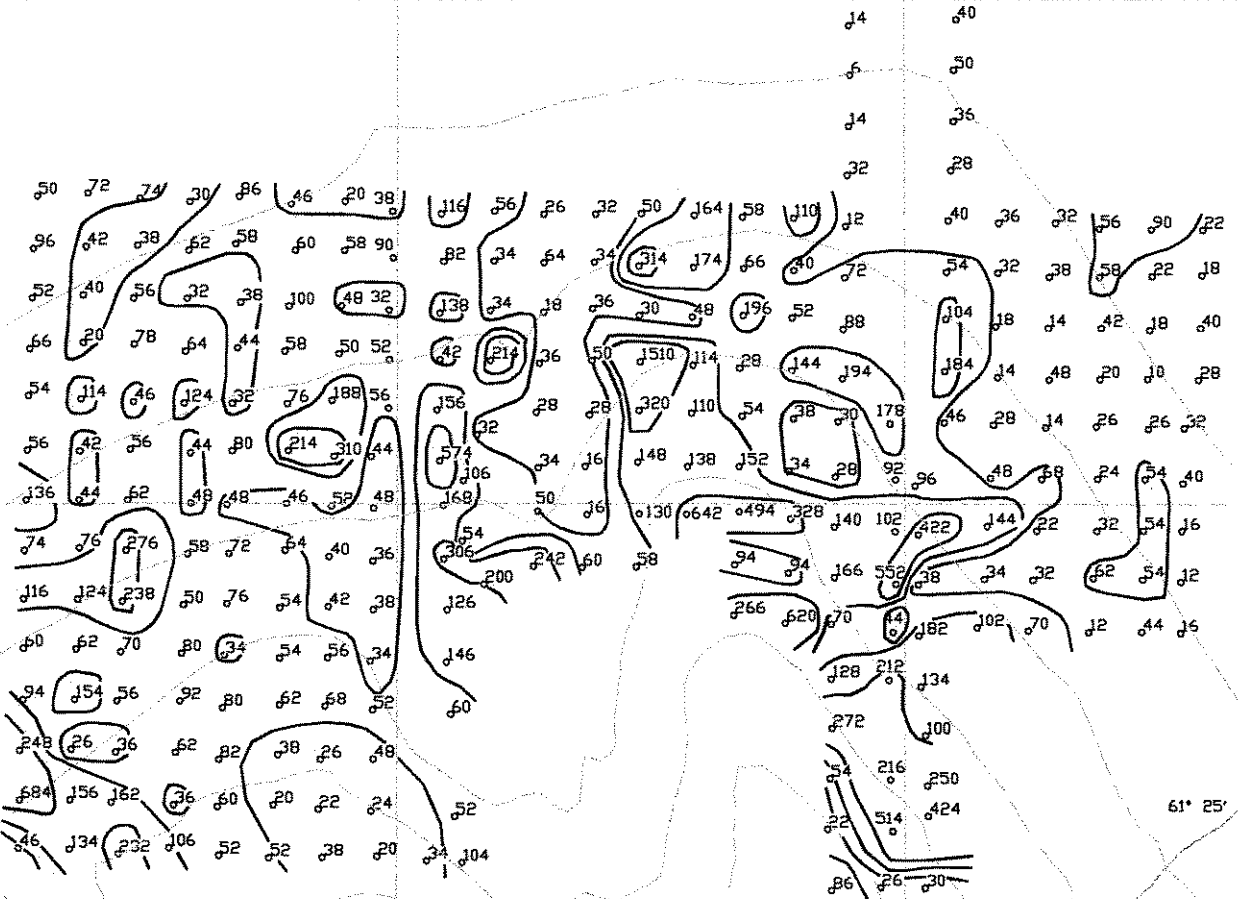 14 40
6 50
14 36
32 28
50 72 74 30 86 46 20 38 116 56 26 32 50 164 58 110 12 40 36 32 56 90 22
96 42 38 62 58 60 58 90 82 34 64 34 314 174 66 40 72 54 32 38 58 22 18
52 40 56 32 38 100 48 32 138 34 18 36 30 48 196 52 88 104 18 14 42 18 40
66 20 78 64 44 58 50 52 42 214 36 50 1510 114 28 144 194 184 14 48 20 10 28
54 114 46 124 32 76 188 56 156 32 28 28 320 110 54 38 30 178 46 28 14 26 26 32
56 42 56 44 80 214 310 44 574 106 34 16 148 138 152 34 28 92 96 48 68 24 54 40
136 44 62 48 48 46 52 48 168 54 50 16 130 642 494 328 140 102 422 144 22 32 54 16
74 76 276 58 72 64 40 36 306 200 242 60 58 94 94 166 552 38 34 32 62 54 12
116 124 238 50 76 54 42 38 126 266 620 70 44 182 102 70 12 44 16
60 62 70 80 34 54 56 34 146 128 212 134
94 154 56 92 80 62 68 52 60 272 100
248 26 36 62 82 38 26 48 54 216 250
684 156 162 36 60 20 22 24 52 22 514 424 61° 25'
46 134 232 106 52 52 38 20 34 104 86 26 30